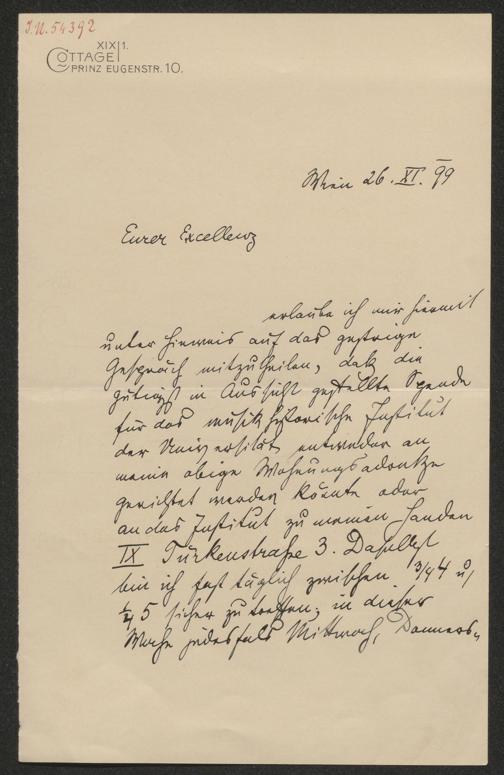 I.N. 54392
XIX|1.
COTTAGE
PRINZ EUGENSTR. 10.
Wien 26. XI. 99
Eurer Excellenz
erlaube ich mir hiemit
unter Hinweis auf das gestrige
Gespräch mitzutheilen, daß die
gütigst in Aussicht gestellte Spende
für das musikhistorische Institut
der Universität entweder an
meine obige Wohnungsadresse
gerichtet werden könnte oder
an das Institut zu meinen Handen
IX Türkenstraße 3. Daselbst
bin ich fast täglich zwischen 3/4 4 u.
1/4 5 sicher zu treffen; in dieser
Woche jedesfals Mittwoch, Donners-